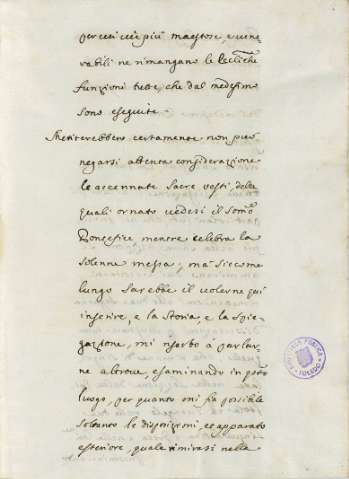 per cui via più maestose, e vene
rabili ne rimangano le Ecclesiche
funzioni tutte, che dal medesimo
sono eseguite.
Meriterebbero certamente non può
negarsi attenta considerazione
le accennate Sacre vesti, delle
quali ornato vedesi il Somo
Pontefice mentre celebra la
solenne messa; ma siccome
lungo sarebbe il volerne qui
inserire, e la Storia, e la Spie-
gazione, mi riserbo a parlar
ne altrove, esaminando in questo
luogo, per quanto mi fia possibile
soltanto le disposizioni, ed apparato
esteriore, quale rimirasi nella
BIBLIOTECA PUBLICA
TOLEDO